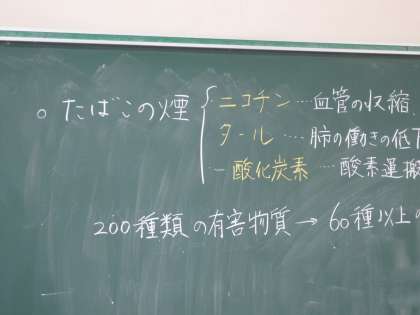 ○ たばこの煙 { ニコチン … 血管の収縮
タール … 肺の働きの低下
一酸化炭素 … 酸素運搬
200種類の有害物質 → 60種以上の